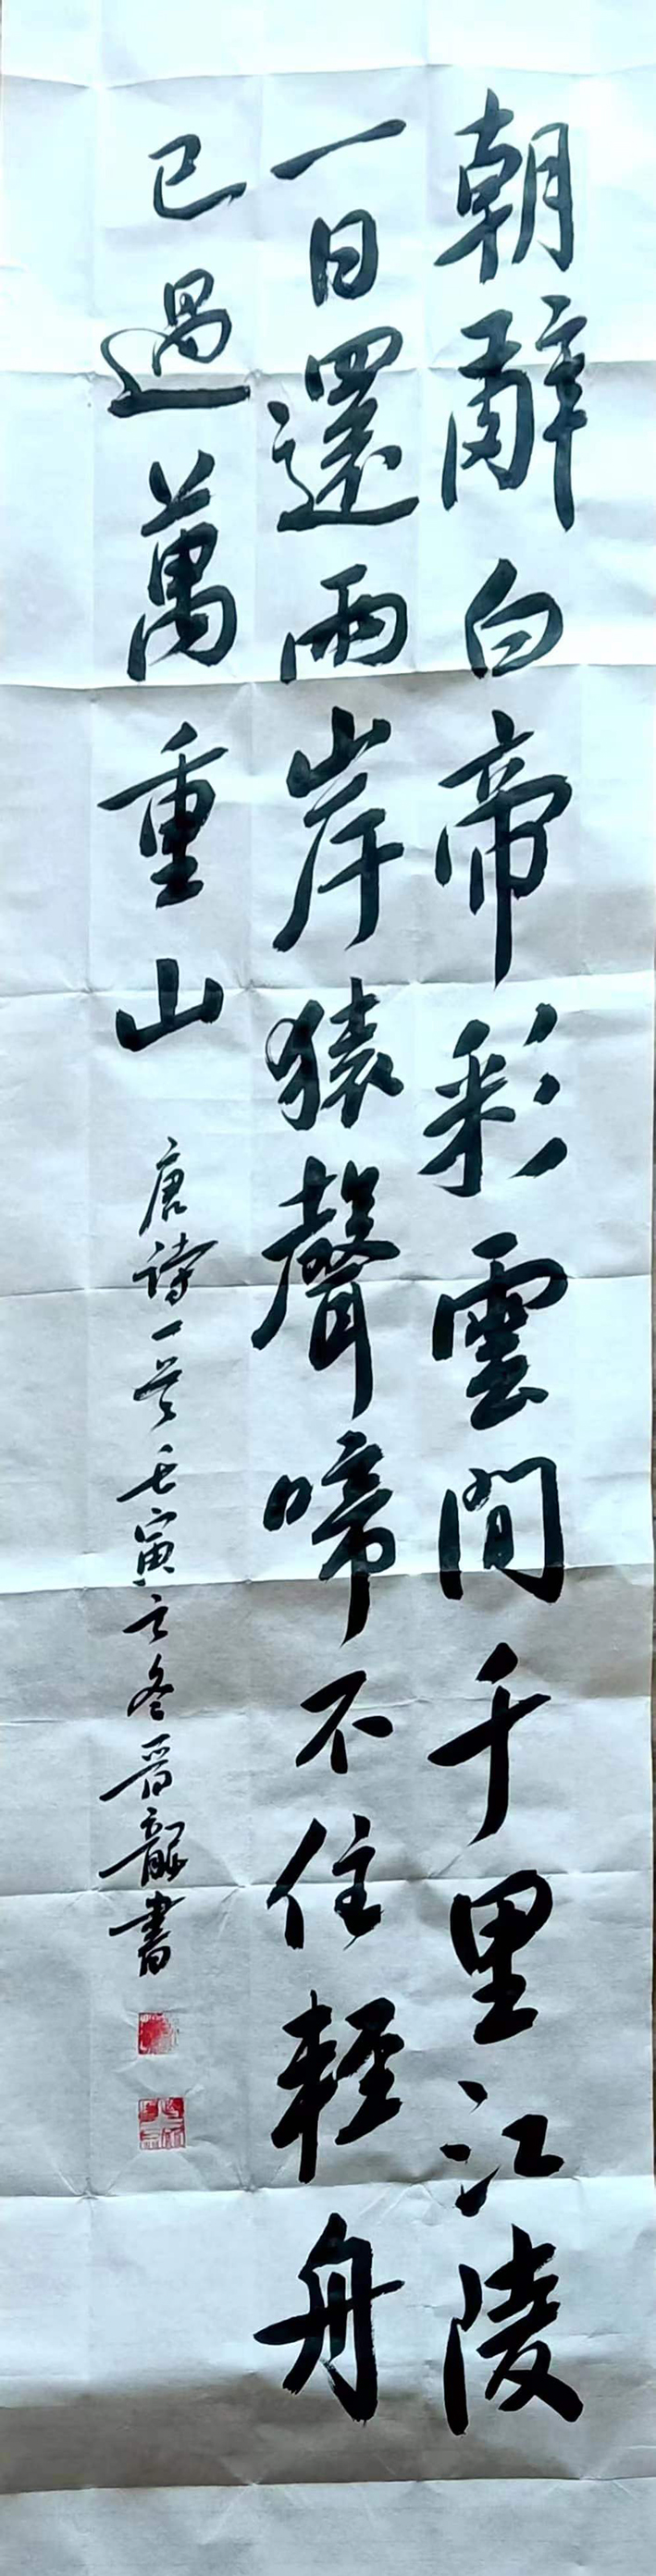 朝辭白帝彩雲間千里江陵
一日還兩岸猿聲啼不住輕舟
已過萬重山
唐詩一首壬寅之冬晋龍書